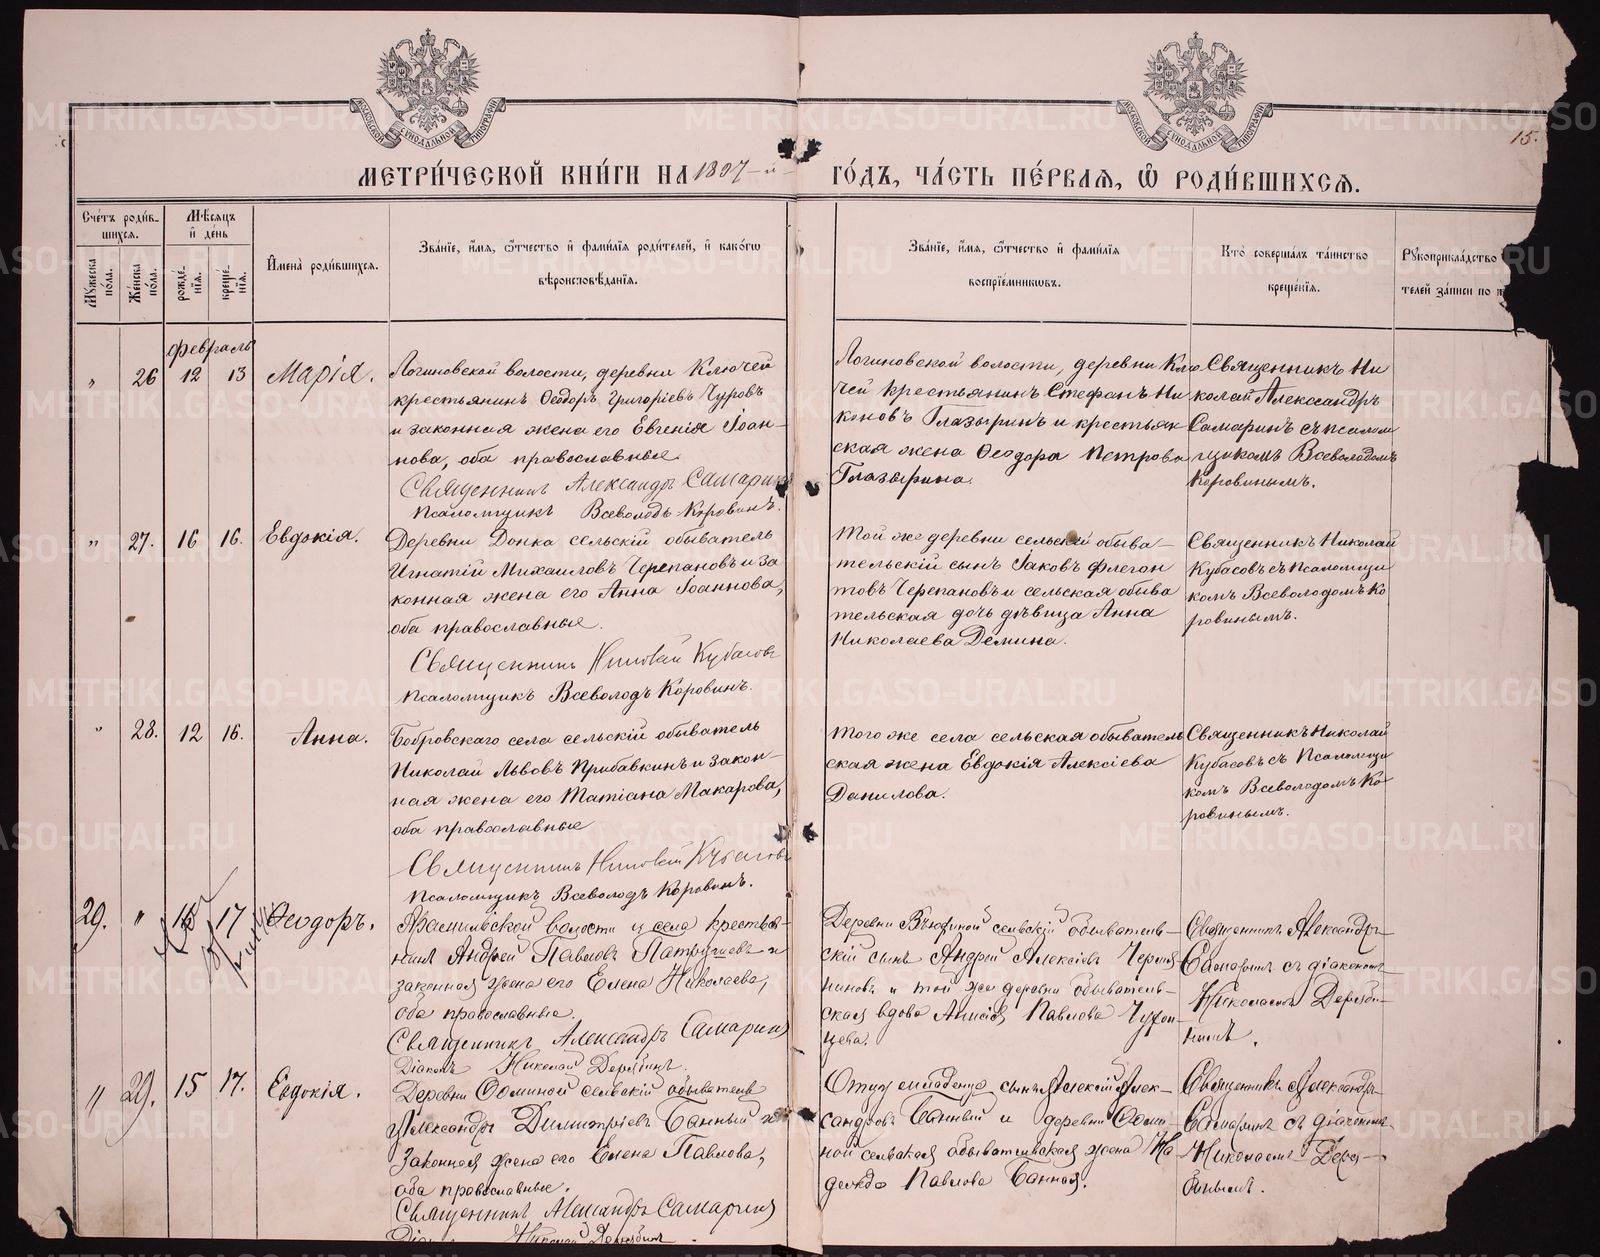 15.
МЕТРИ́ЧЕСКОЙ КНИ́ГИ НА 1897-й ГО́ДЪ, ЧА́СТЬ ПЕ́РВАЯ, Ѿ РОДИ́ВШИХСЯ.
Сче́тъ роди́в-
шихся.
Мѣ́сяцъ
и де́нь
Мужеска по́ла.
Же́нска по́ла.
рожде́-
нія.
креще́-
нія.
Имена̀ роди́вшихся.
Зва́ніе, и́мя, ѻ҆́тчество и фами́лія роди́телей, и како́гѡ
вѣроисповѣ́данія.
Зва́ніе, и́мя, ѻ҆́тчество и фами́лія
воспріе́мниковъ.
Кто̀ соверша́лъ та́инство
креще́нія.
Рукоприкла́дство
телей за́писи по
февраль
" 26 12 13 Марія.
Логиновской волости, деревни Ключей
крестьянинъ Ѳеодоръ Григоріевъ Чуровъ
и законная жена его Евгенія Іоан-
нова, оба православные.
Священникъ Александръ Самаринъ
Псаломщикъ Всеволодъ Коровинъ.
Логиновской волости, деревни Клю
чей крестьянинъ Стефанъ Ни
коновъ Глазыринъ и крестьян
ская жена Ѳеодора Петрова
Глазырина.
Священникъ Ни
колай Александръ
Самаринъ съ псалом
щикомъ Всеволодомъ
Коровинымъ.
" 27. 16 16. Евдокія.
Деревни Донка сельскій обыватель
Игнатій Михаиловъ Черепановъ и за
конная жена его Анна Іоаннова,
оба православные.
Священникъ Николай Кубасовъ
Псаломщикъ Всеволодъ Коровинъ.
Той же деревни сельскій обыва-
тельскій сынъ Іаковъ Флегон
товъ Черепановъ и сельская обыва
тельская дочь дѣвица Анна
Николаева Демина.
Священникъ Николай
Кубасовъ съ Псаломщи
комъ Всеволодомъ Ко
ровинымъ.
" 28. 12 16. Анна.
Бобровскаго села сельскій обыватель
Николай Львовъ Прибавкинъ и закон-
ная жена его Татіана Макарова,
оба православные
Священникъ Николай Кубасовъ
Псаломщикъ Всеволодъ Коровинъ.
Того же села сельская обыватель
ская жена Евдокія Алексіева
Данилова.
Священникъ Николай
Кубасовъ съ Псаломщи
комъ Всеволодомъ Ко
ровинымъ.
29. " 16 17 Ѳеодоръ.
Арамильской волости и села крестья-
нинъ Андрей Павловъ Патрушевъ и
законная жена его Елена Николаева,
оба православные.
Священникъ Александръ Самаринъ
Діаконъ Николай Дерябинъ.
Деревни сельскій обыватель-
скій сынъ Андрей Алексіевъ Черем-
и той же деревни обыватель-
ская вдова Анисія Павлова
Священникъ Александръ
Самаринъ съ діакономъ
Николаемъ Деряби-
нымъ.
" 29. 15 17. Евдокія.
Деревни Фоминой сельскій обыватель
Александръ Димитріевъ Банный и
законная жена его Елена Павлова,
оба православные.
Священникъ Александръ Самаринъ
Діаконъ Николай Дерябинъ.
Отцу младенца сынъ Алексій Алек-
сандровъ Банный и деревни Фоми-
ной сельская обывательская жена На-
дежда Павлова Банная.
Священникъ Александръ
Самаринъ съ діакономъ
Николаемъ Деря-
бинымъ.
METRIKI.GASO-URAL.RU